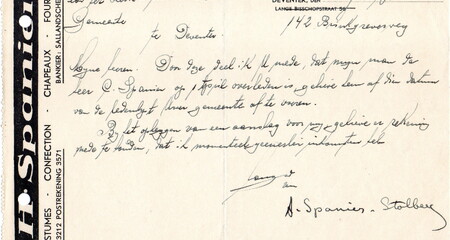 DEVENTER, DEN
LANGE BISSCHOPSTRAAT 56
142 Brinkgreverweg
Gemeente
te Deventer
heeren. Door deze deel ik U mede, dat mijn man de
heer C. Spanier op 1 April overleden is, gelieve hem af die datum
van de ledenlijst Uwer gemeente af te voeren.
Bij het opleggen van een aanslag voor mij, gelieve er rekening
mede te houden, dat ik momenteel geen inkomsten heb.
A. Spanier-Stolberg
H. Spanier
COSTUMES - CONFECTION - CHAPEAUX - FOUR
3212 POSTREKENING 3571 BANKIER: SALLANDSCHE